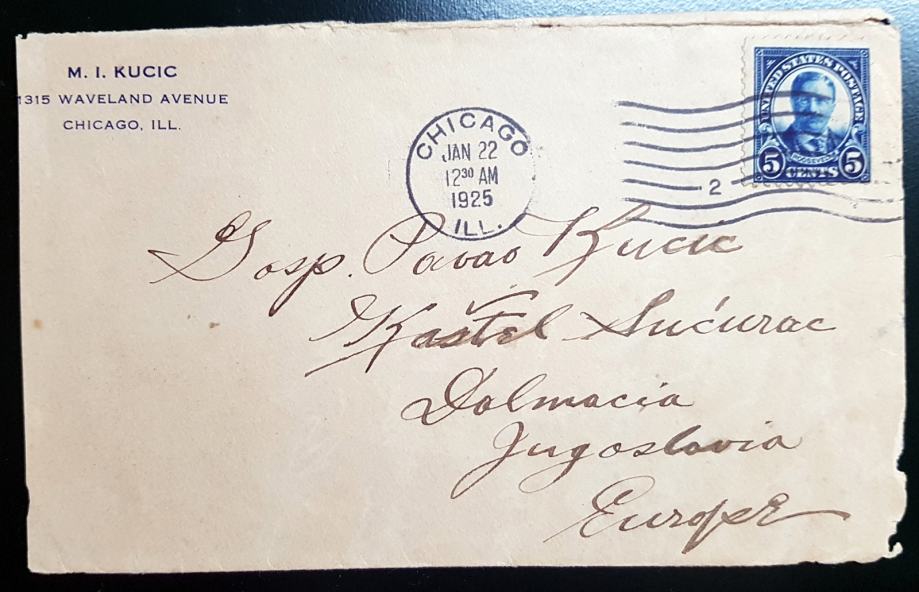 M. I. KUCIC
1315 WAVELAND AVENUE
CHICAGO, ILL.
CHICAGO
JAN 22
12³⁰ AM
1925
ILL.
2
UNITED STATES POSTAGE
ROOSEVELT
5 CENTS 5
Gosp. Pavao Kucic
Kaštel Sućurac
Dalmacia
Jugoslavia
Europe